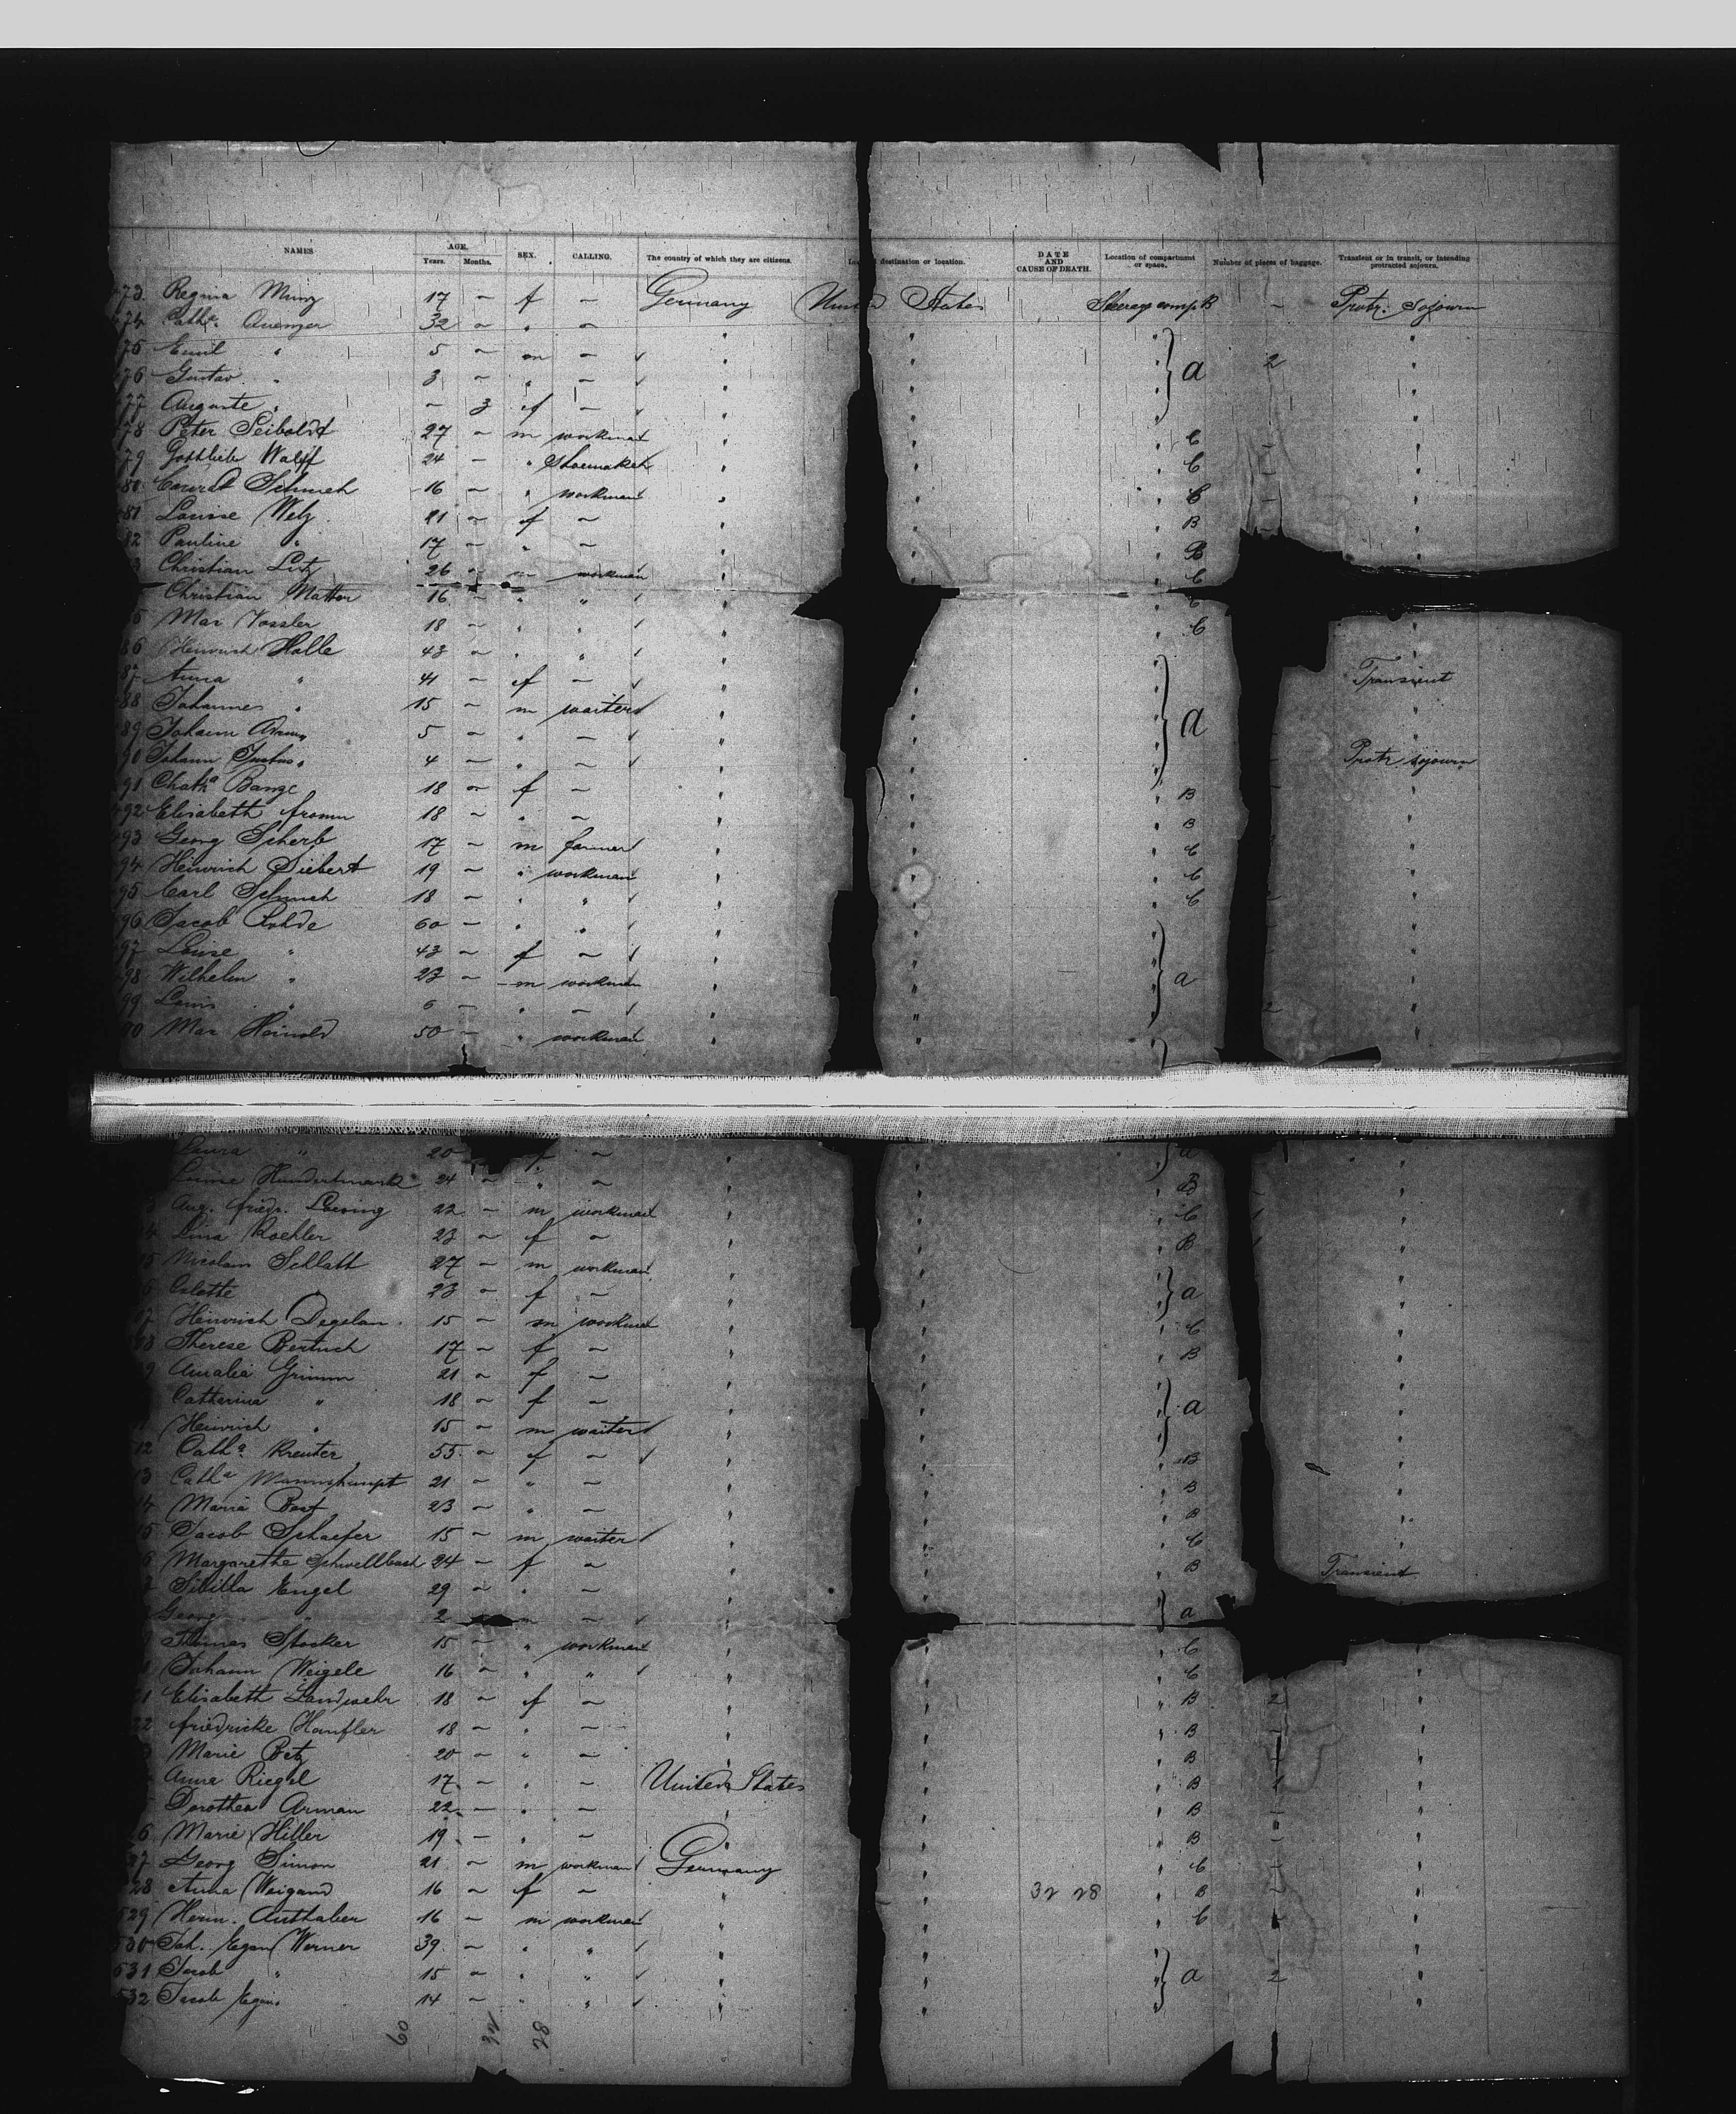 NAMES AGE. Years. Months. SEX. CALLING. The country of which they are citizens. destination or location. DATE AND CAUSE OF DEATH. Location of compartment or space. Number of pieces of baggage. Transient or in transit, or intending protracted sojourn.
73. Regina Munz 17 — f — Germany States Steerage comp B — Protr. Sojourn
74 Cath.a Quenzer 32 — " —
75 Emil " 5 — m —
76 Gustav " 3 — " — } a 2
77 Auguste " — 3 f —
78 Peter Seiboldt 27 — m workman C —
79 Gottlieb Wolff 24 — " Shoemaker C —
80 Conrad Schuch 16 — " workman C —
81 Louise Welz 21 — f — B
82 Pauline " 17 — " — B
Christian Lutz 26 — m workman C
Christian Matter 16 — " " C
Max Vossler 18 — " " C
86 Heinrich Halle 43 — " "
87 Anna " 41 — f — Transient
88 Johannes " 15 — m waiter
89 Johann " 5 — " — } a
90 Johann Justus " 4 — " — Protr. sojourn
91 Cath.a Bange 18 — f — B
492 Elisabeth Fromm 18 — " — B
493 Georg Scherb 17 — m farmer C
94 Heinrich Siebert 19 — " workman C
95 Carl Schuch 18 — " " C
96 Jacob Rohde 60 — " "
97 Louise " 43 — f —
98 Wilhelm " 23 — m workman } a
99 Louis " 6 — " — 2
00 Max Heinold 50 — " workman
Laura " 20 — f — a
Louise Hundertmark 24 — " — B
Aug. Friedr. 22 — m workman C
4 Lina Koehler 23 — f — B
5 Nicolaus Schlatt 27 — m workman
6 23 — f — } a
07 Heinrich Degelau 15 — m workman C
08 Therese Bertuch 17 — f — B
9 Amalia Grimm 21 — f —
Catherina " 18 — f — } a
Heinrich " 15 — m waiter
12 Cath.a Kreuter 55 — f — B
13 Cath.a 21 — " — B
14 Maria Bast 23 — " — B
15 Jacob Schaefer 15 — m waiter C
6 Margarethe Schwellbach 24 — f — B Transient
Sibilla Engel 29 — " —
Georg " 2 — m — } a
Thomas Stocker 15 — " workman C
Johann Weigele 16 — " " C
21 Elisabeth Landwehr 18 — f — B 2
22 Friedricke Hanfler 18 — " — B —
Marie Betz 20 — " — B
Anna Riegel 17 — " — United States B 1
Dorothea Arman 22 — " — B —
26 Marie Hiller 19 — " — B —
27 Georg Simon 21 — m workman Germany C —
28 Anna Weigand 16 — f — 32 28 B —
529 Herm. Authaber 16 — m workman C
530 Joh. Egon Werner 39 — " "
531 Jacob " 15 — " " } a 2
532 Jacob 14 — " "
60 32 28